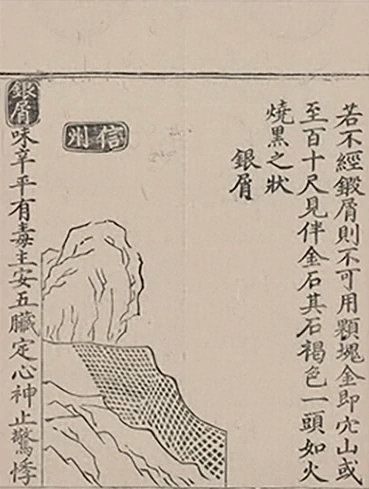 若不經鍛屑則不可用顆塊金即穴山或
至百十尺見伴金石其石褐色一頭如火
燒黑之狀
銀屑
信州
銀屑味辛平有毒主安五臟定心神止驚悸